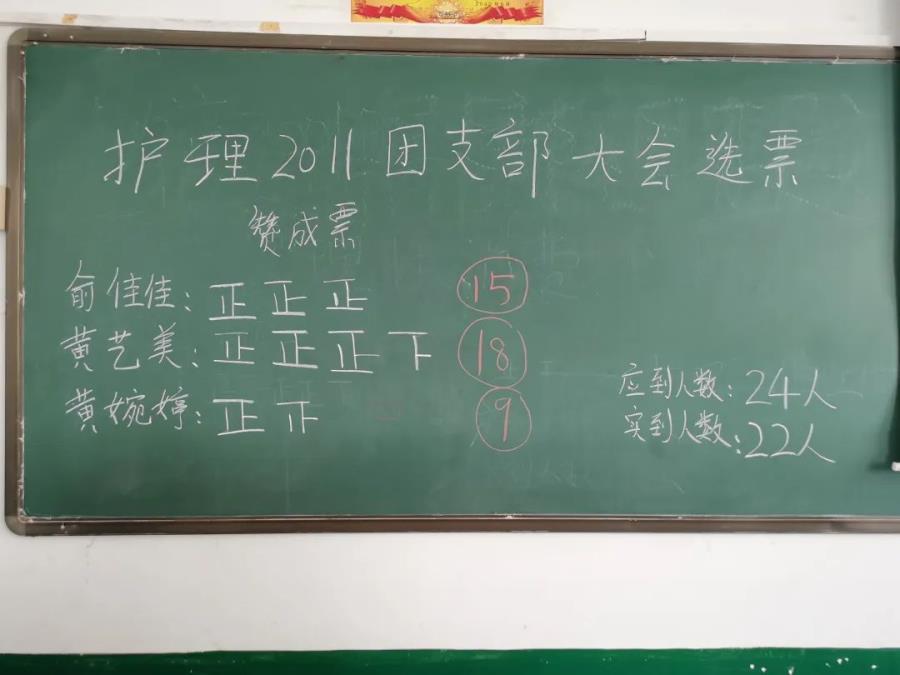 护理2011团支部大会选票
赞成票
俞佳佳：正正正 15
黄艺美：正正正下 18
黄婉婷：正正 9
应到人数：24人
实到人数：22人